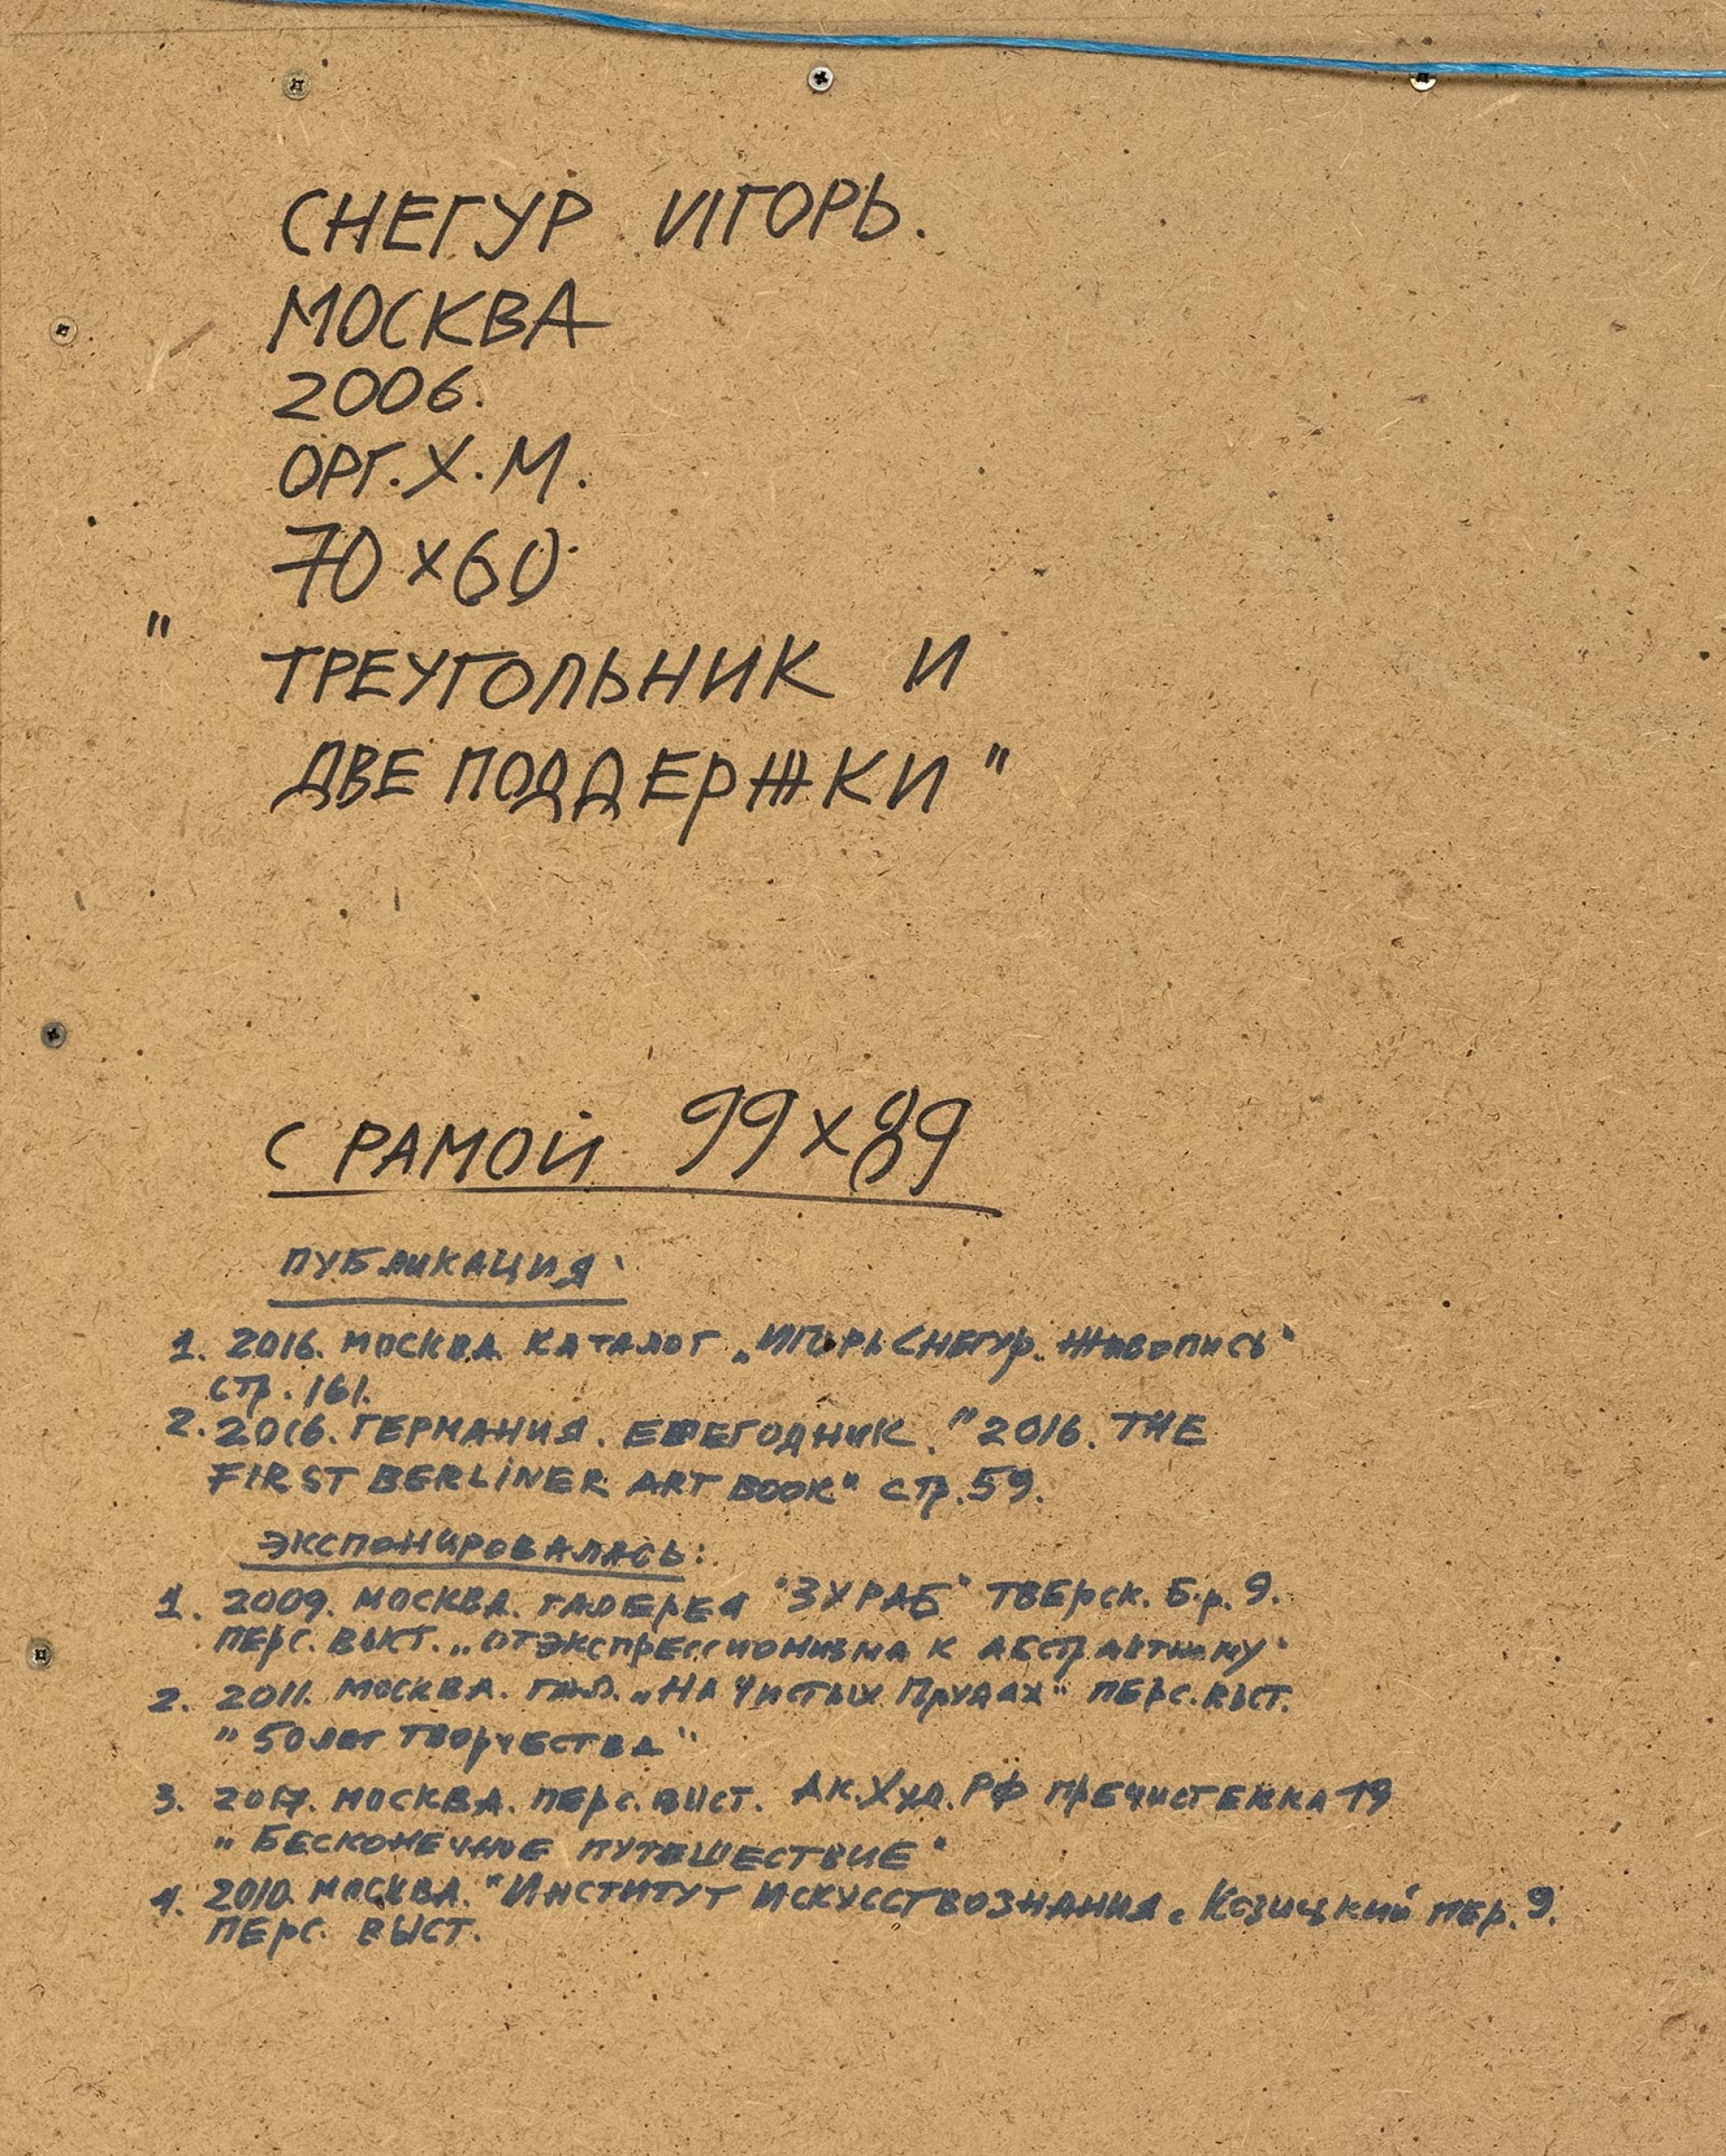 СНЕГУР ИГОРЬ.
МОСКВА
2006.
ОРГ.Х.М.
70×60
"ТРЕУГОЛЬНИК И
ДВЕ ПОДДЕРЖКИ"
С РАМОЙ 99×89
ПУБЛИКАЦИЯ:
1. 2016. МОСКВА КАТАЛОГ „ИГОРЬ СНЕГУР. Живопись"
стр. 161.
2. 2016. ГЕРМАНИЯ. ЕЖЕГОДНИК. "2016. THE
FIRST BERLINER ART BOOK" стр. 59.
ЭКСПОНИРОВАЛАСЬ:
1. 2009. МОСКВА. ГАЛЕРЕЯ "ЗУРАБ" ТВЕРСК. Б-р. 9.
ПЕРС. ВЫСТ. „ОТ ЭКСПРЕССИОНИЗМА К
2. 2011. МОСКВА. ГАЛ. „На Чистых Прудах" ПЕРС. ВЫСТ.
"50 лет ТВОРЧЕСТВА"
3. 2017. МОСКВА. ПЕРС. ВЫСТ. Ак. Худ. РФ ПРЕЧИСТЕНКА 19
„БЕСКОНЕЧНОЕ ПУТЕШЕСТВИЕ"
4. 2010. МОСКВА. "ИНСТИТУТ ИСКУССТВОЗНАНИЯ. Козицкий пер. 9.
ПЕРС. ВЫСТ.